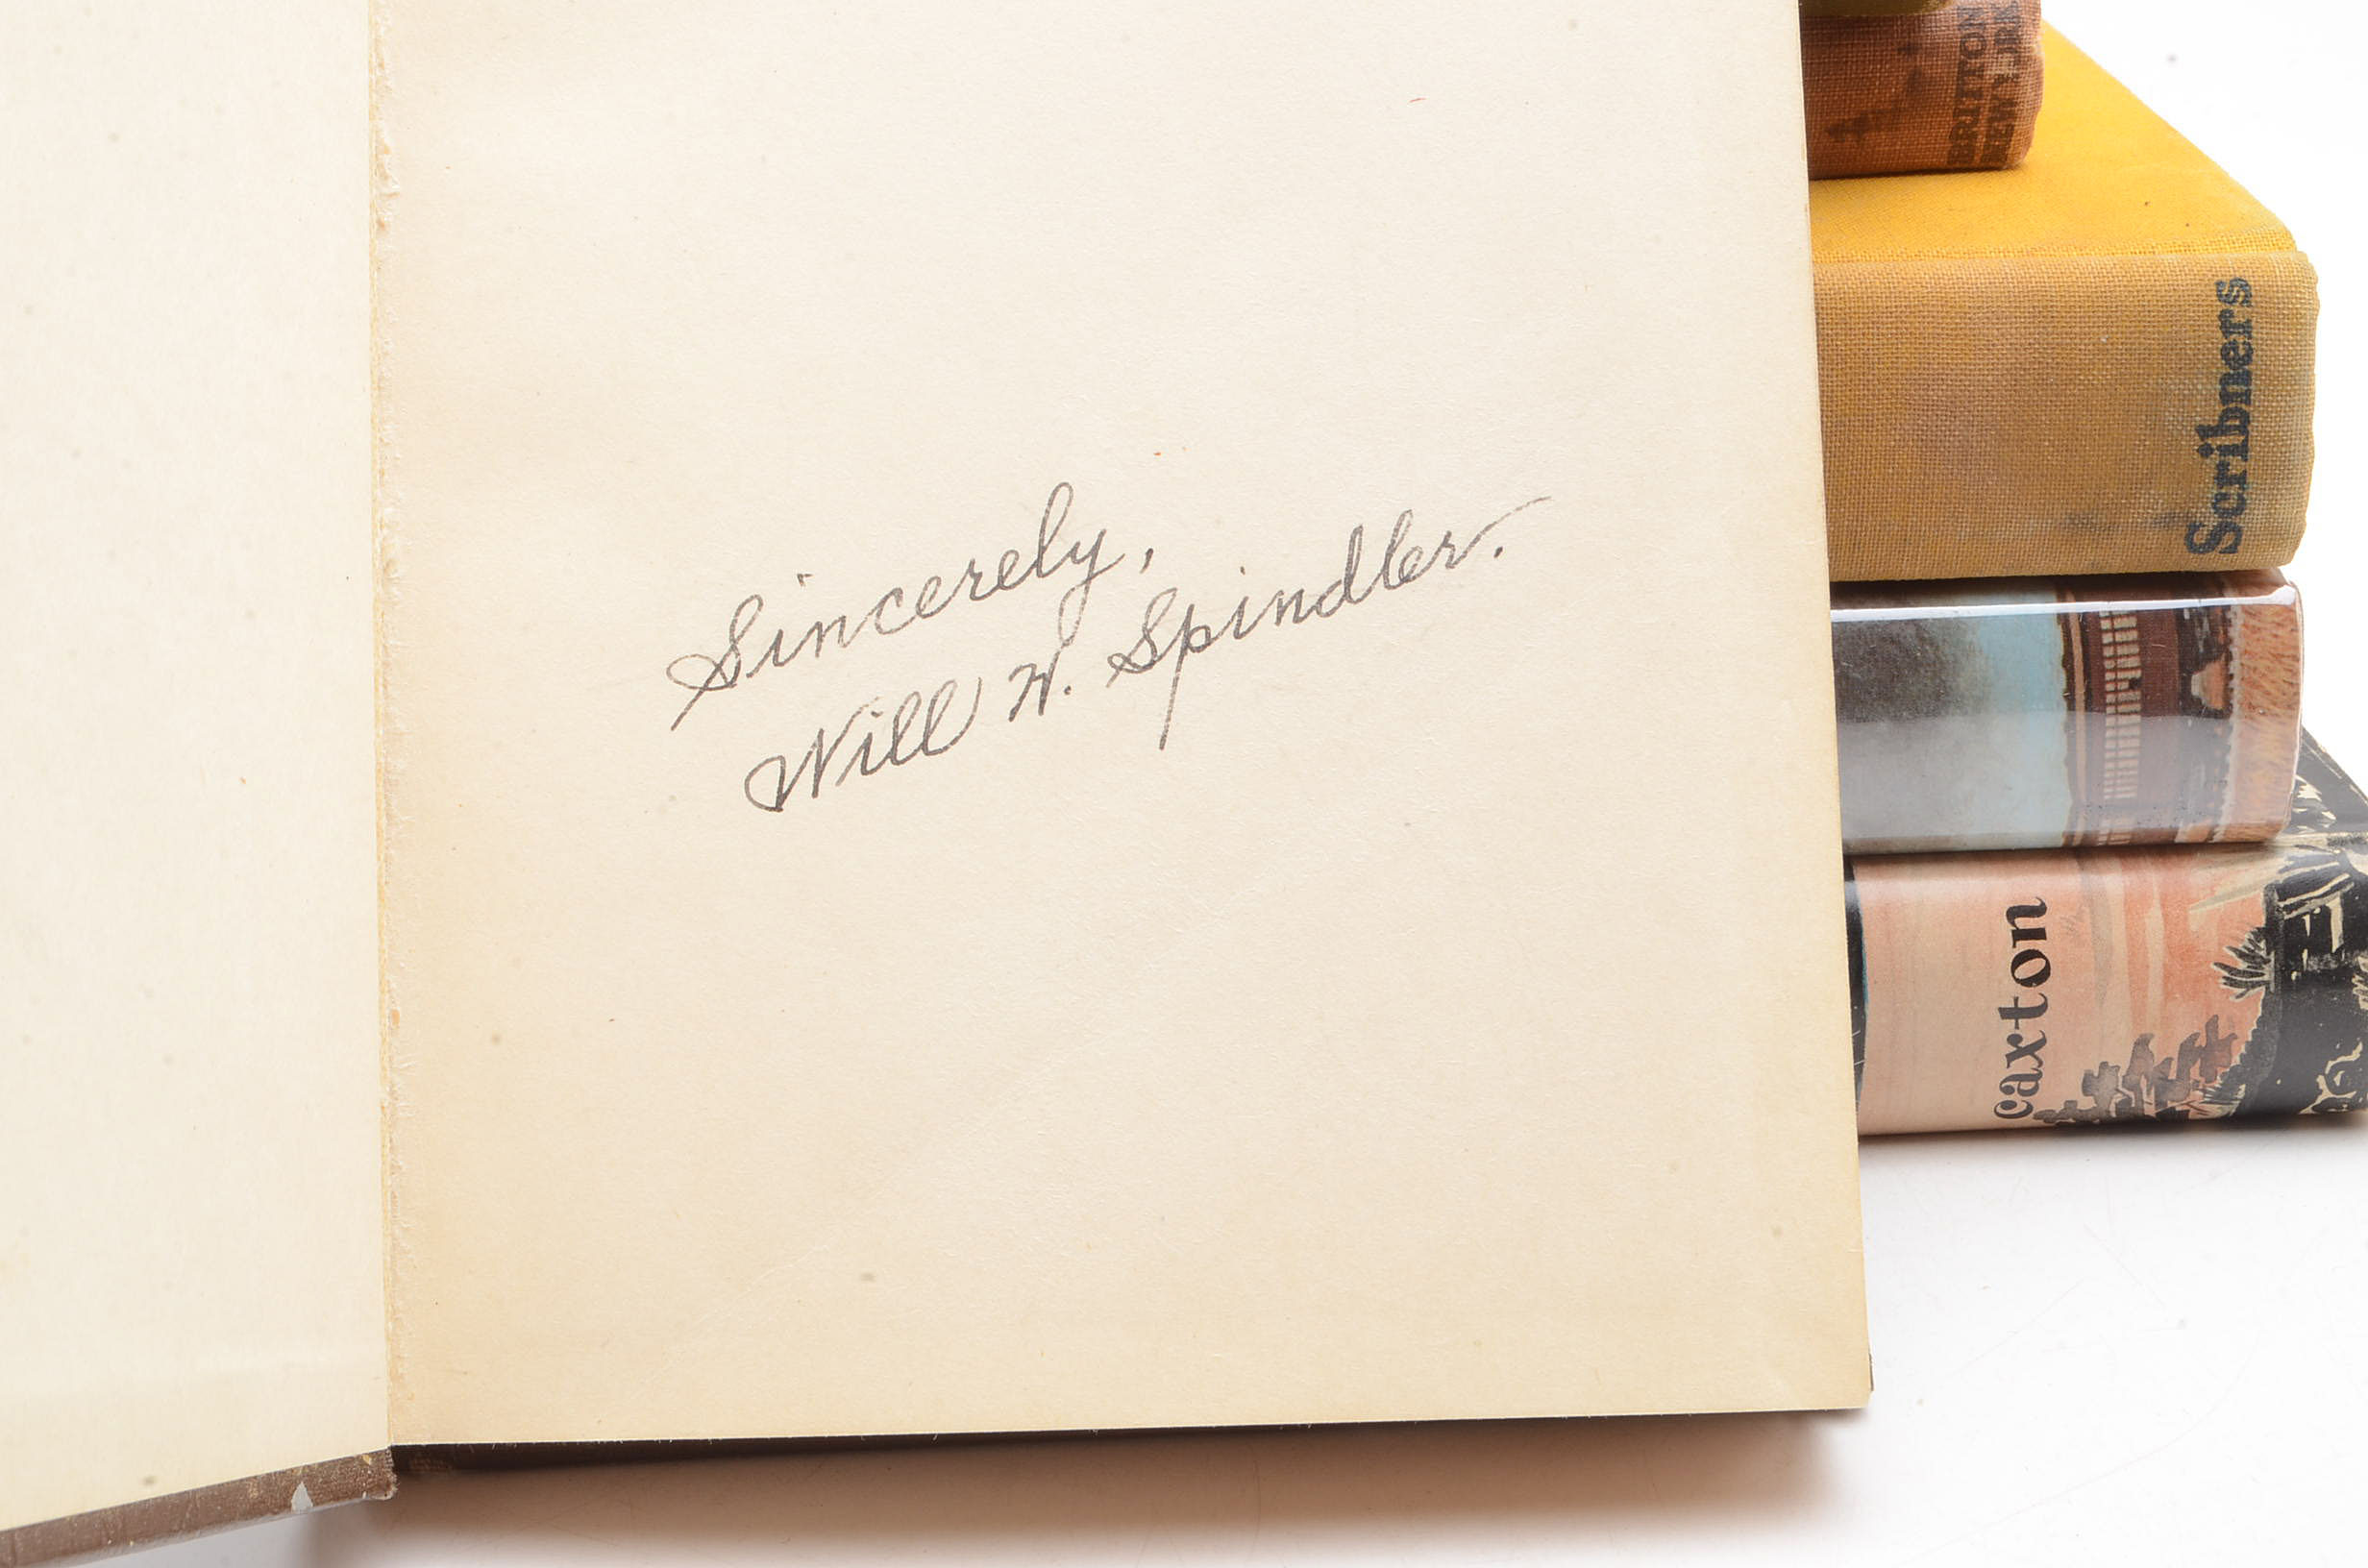 Sincerely,
Will W. Spindler.
BRITTON
NEW YORK
Scribners
caxton